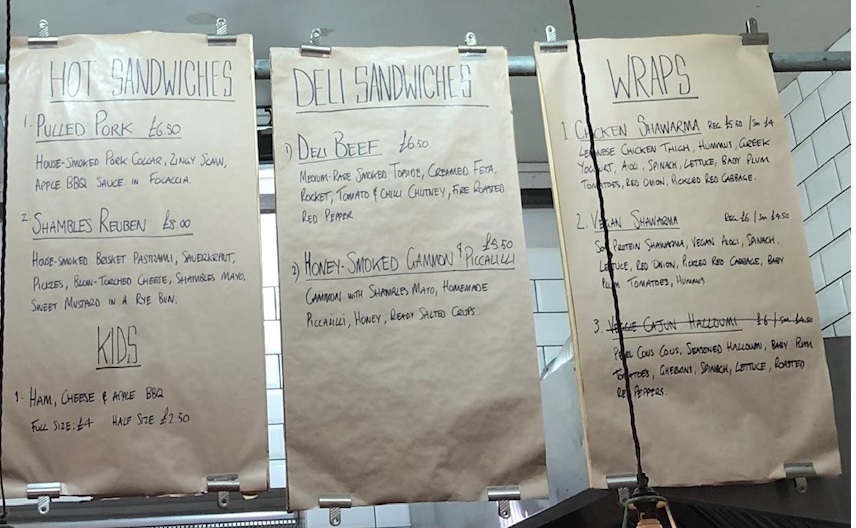 HOT SANDWICHES
1. PULLED PORK £6.50
HOUSE-SMOKED PORK COLLAR, ZINGY SLAW,
APPLE BBQ SAUCE IN FOCACCIA.
2. SHAMBLES REUBEN £8.00
HOUSE-SMOKED BRISKET PASTRAMI, SAUERKRAUT,
PICKLES, BLOW-TORCHED CHEESE, SHAMBLES MAYO,
SWEET MUSTARD IN A RYE BUN.
KIDS
1. HAM, CHEESE & APPLE BBQ
FULL SIZE: £4 HALF SIZE £2.50
DELI SANDWICHES
1) DELI BEEF £6.50
MEDIUM-RARE SMOKED TOPSIDE, CREAMED FETA,
ROCKET, TOMATO & CHILLI CHUTNEY, FIRE ROASTED
RED PEPPER
2) HONEY-SMOKED GAMMON & PICCALILLI £5.50
GAMMON WITH SHAMBLES MAYO, HOMEMADE
PICCALILLI, HONEY, READY SALTED CRISPS.
WRAPS
1. CHICKEN SHAWARMA REG £5.50 / SM £4
LEBANESE CHICKEN THIGH, HUMMUS, GREEK
YOGHURT, AIOLI, SPINACH, LETTUCE, BABY PLUM
TOMATOES, RED ONION, PICKLED RED CABBAGE.
2. VEGAN SHAWARMA REG £6 / SM £4.50
SOY PROTEIN SHAWARMA, VEGAN AIOLI, SPINACH,
LETTUCE, RED ONION, PICKLED RED CABBAGE, BABY
PLUM TOMATOES, HUMMUS.
3. VEGGIE CAJUN HALLOUMI £6 / SM £4.50
PEARL COUS COUS, SEASONED HALLOUMI, BABY PLUM
TOMATOES, GHERKINS, SPINACH, LETTUCE, ROASTED
RED PEPPERS.